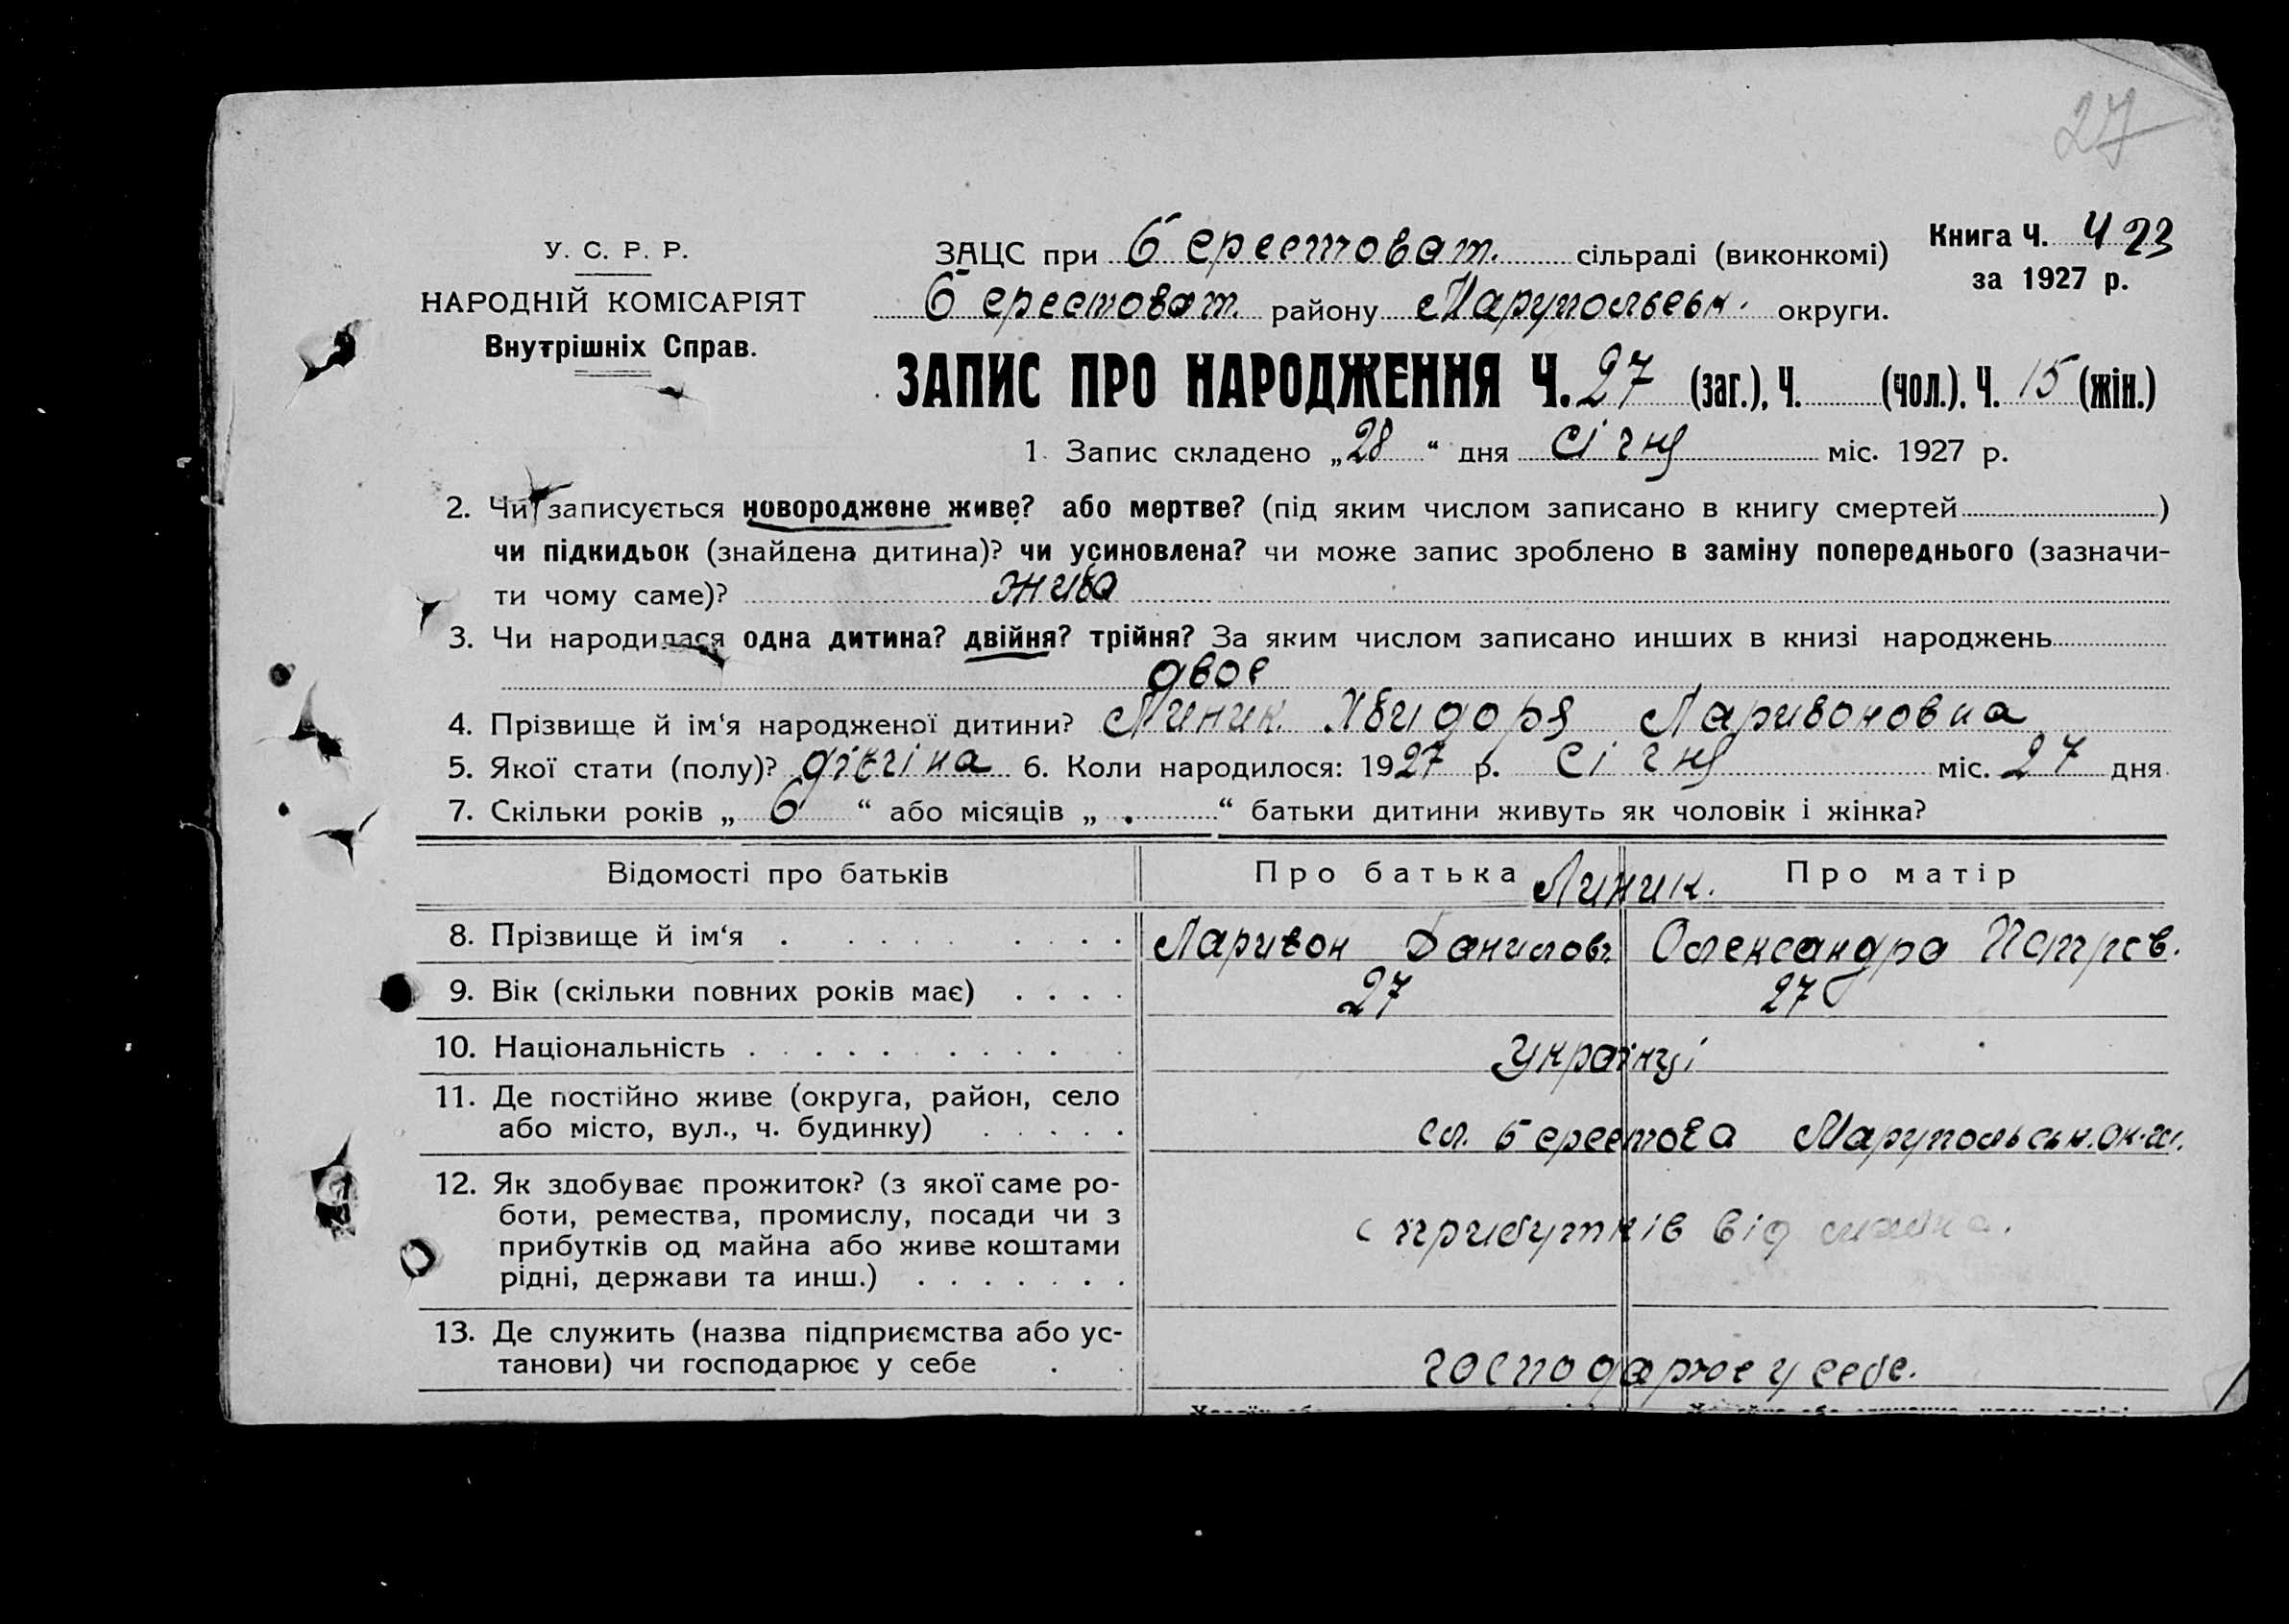 27
У. С. Р. Р.
НАРОДНІЙ КОМІСАРІЯТ
Внутрішніх Справ.
ЗАЦС при Берестоват. сільраді (виконкомі)
Берестоват. району Марупольськ. округи.
Книга Ч. 423
за 1927 р.
ЗАПИС ПРО НАРОДЖЕННЯ Ч. 27 (заг.), Ч. (чол.), Ч. 15 (жін.)
1. Запис складено „28“ дня січня міс. 1927 р.
2. Чи записується новороджене живе? або мертве? (під яким числом записано в книгу смертей)
чи підкидьок (знайдена дитина)? чи усиновлена? чи може запис зроблено в заміну попереднього (зазначи-
ти чому саме)? жива
3. Чи народилася одна дитина? двійня? трійня? За яким числом записано инших в книзі народжень
двое
4. Прізвище й ім‘я народженої дитини? Линик Хвидоря Ларивоновна
5. Якої стати (полу)? дівчіна 6. Коли народилося: 1927 р. січня міс. 27 дня
7. Скільки років „ 6 “ або місяців „ . “ батьки дитини живуть як чоловік і жінка?
Відомості про батьків Про батька Линик. Про матір
8. Прізвище й ім‘я Ларивон Данилов. Олександра Петров.
9. Вік (скільки повних років має) 27 27
10. Національність Українці
11. Де постійно живе (округа, район, село
або місто, вул., ч. будинку) сл. Берестова Марупольськ. ок.
12. Як здобуває прожиток? (з якої саме ро-
боти, ремества, промислу, посади чи з
прибутків од майна або живе коштами
рідні, держави та инш.) с прибутків від майна.
13. Де служить (назва підприємства або ус-
танови) чи господарює у себе господарює у себе.